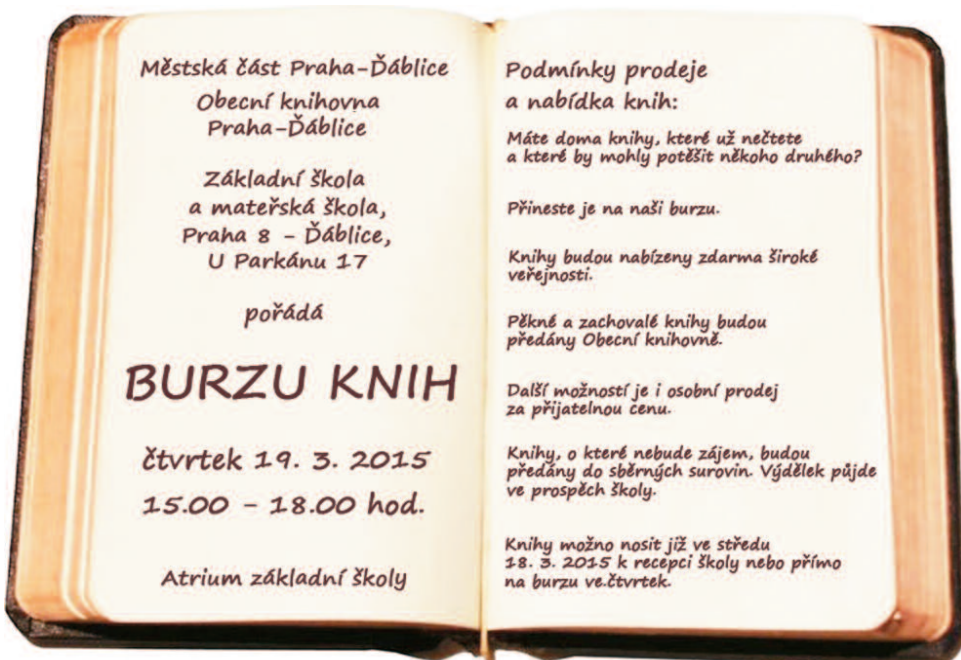 Městská část Praha-Ďáblice
Obecní knihovna
Praha-Ďáblice
Základní škola
a mateřská škola,
Praha 8 - Ďáblice,
U Parkánu 17
pořádá
BURZU KNIH
čtvrtek 19. 3. 2015
15.00 - 18.00 hod.
Atrium základní školy
Podmínky prodeje
a nabídka knih:
Máte doma knihy, které už nečtete
a které by mohly potěšit někoho druhého?
Přineste je na naši burzu.
Knihy budou nabízeny zdarma široké
veřejnosti.
Pěkné a zachovalé knihy budou
předány Obecní knihovně.
Další možností je i osobní prodej
za přijatelnou cenu.
Knihy, o které nebude zájem, budou
předány do sběrných surovin. Výdělek půjde
ve prospěch školy.
Knihy možno nosit již ve středu
18. 3. 2015 k recepci školy nebo přímo
na burzu ve.čtvrtek.